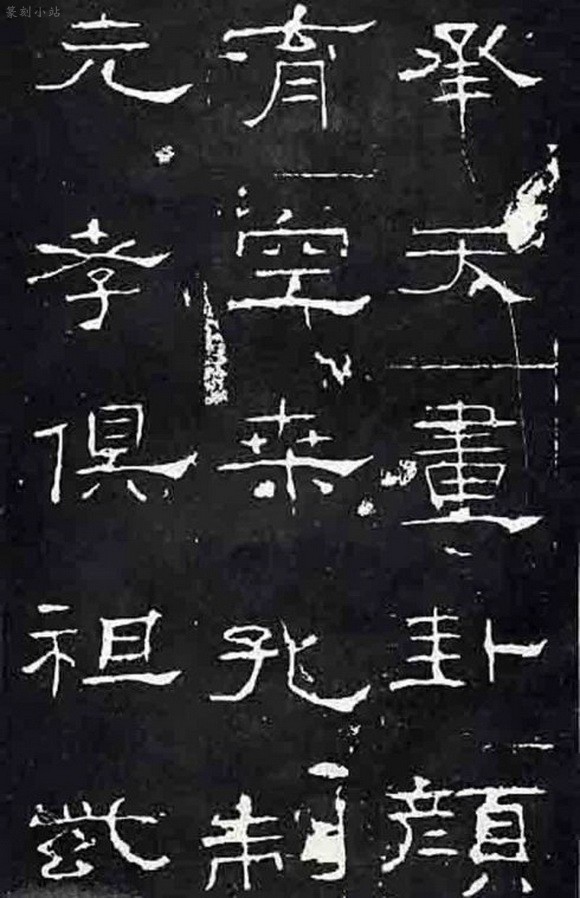 篆刻小站
承天畫卦顏
育空桒孔制
元孝俱祖紫